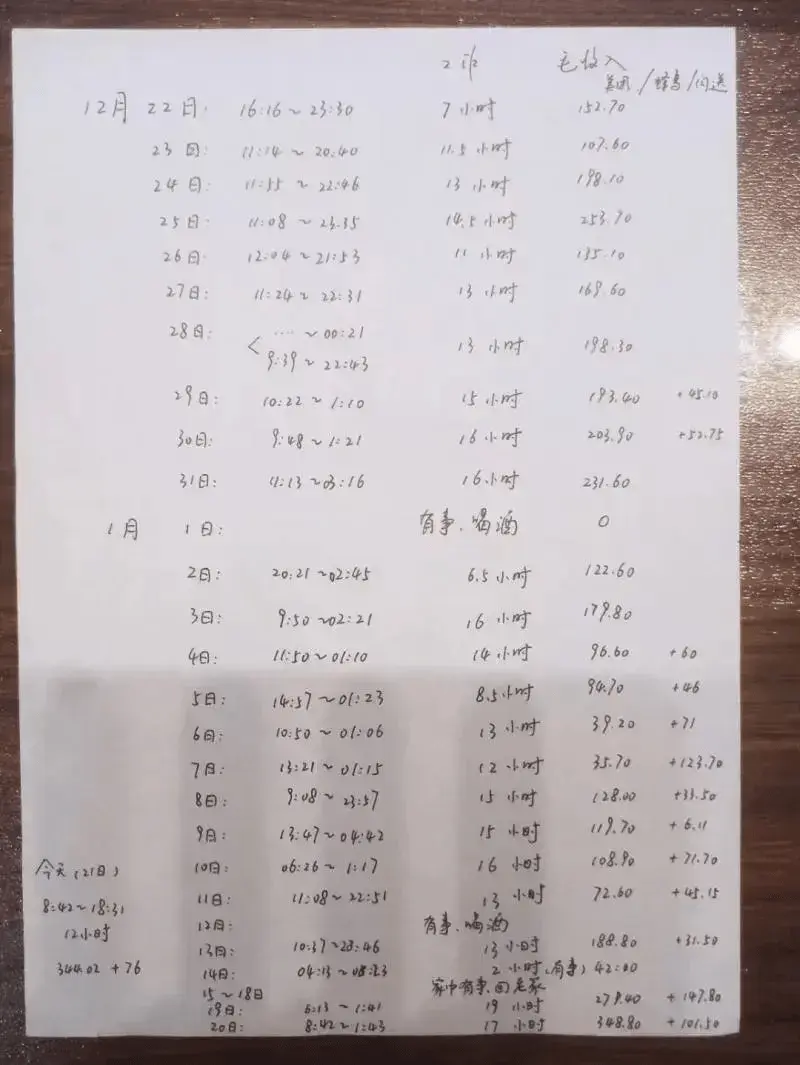 工作 毛收入
美团/蜂鸟/闪送
12月 22日: 16:16~23:30 7小时 152.70
23日: 11:14~20:40 11.5小时 107.60
24日: 11:55~22:46 13小时 198.10
25日: 11:08~23:35 14.5小时 253.90
26日: 12:04~21:53 11小时 135.10
27日: 11:24~22:31 13小时 169.60
28日: ····~00:21
9:39~22:43 13小时 198.30
29日: 10:22~1:10 15小时 193.40 +45.10
30日: 9:48~1:21 16小时 203.90 +52.75
31日: 4:13~03:16 16小时 231.60
1月 1日: 有事、喝酒 0
2日: 20:21~02:45 6.5小时 122.60
3日: 9:50~02:21 16小时 179.80
4日: 11:50~01:10 14小时 96.60 +60
5日: 14:57~01:23 8.5小时 94.70 +46
6日: 10:50~01:06 13小时 39.20 +71
7日: 13:21~01:15 12小时 35.70 +123.70
8日: 9:08~23:57 15小时 128.00 +33.50
9日: 13:47~04:42 15小时 119.70 +6.11
10日: 06:26~1:17 16小时 108.90 +71.70
11日: 11:08~22:51 13小时 72.60 +45.15
12日: 有事、喝酒
13日: 10:37~23:46 13小时 188.80 +31.50
14日: 04:13~08:23 2小时(有事) 42:00
15~18日 家中有事、回老家
19日: 6:13~1:41 19小时 279.40 +147.80
20日: 8:42~1:43 17小时 348.80 +101.50
今天(21日)
8:42~18:31
12小时
344.02+76